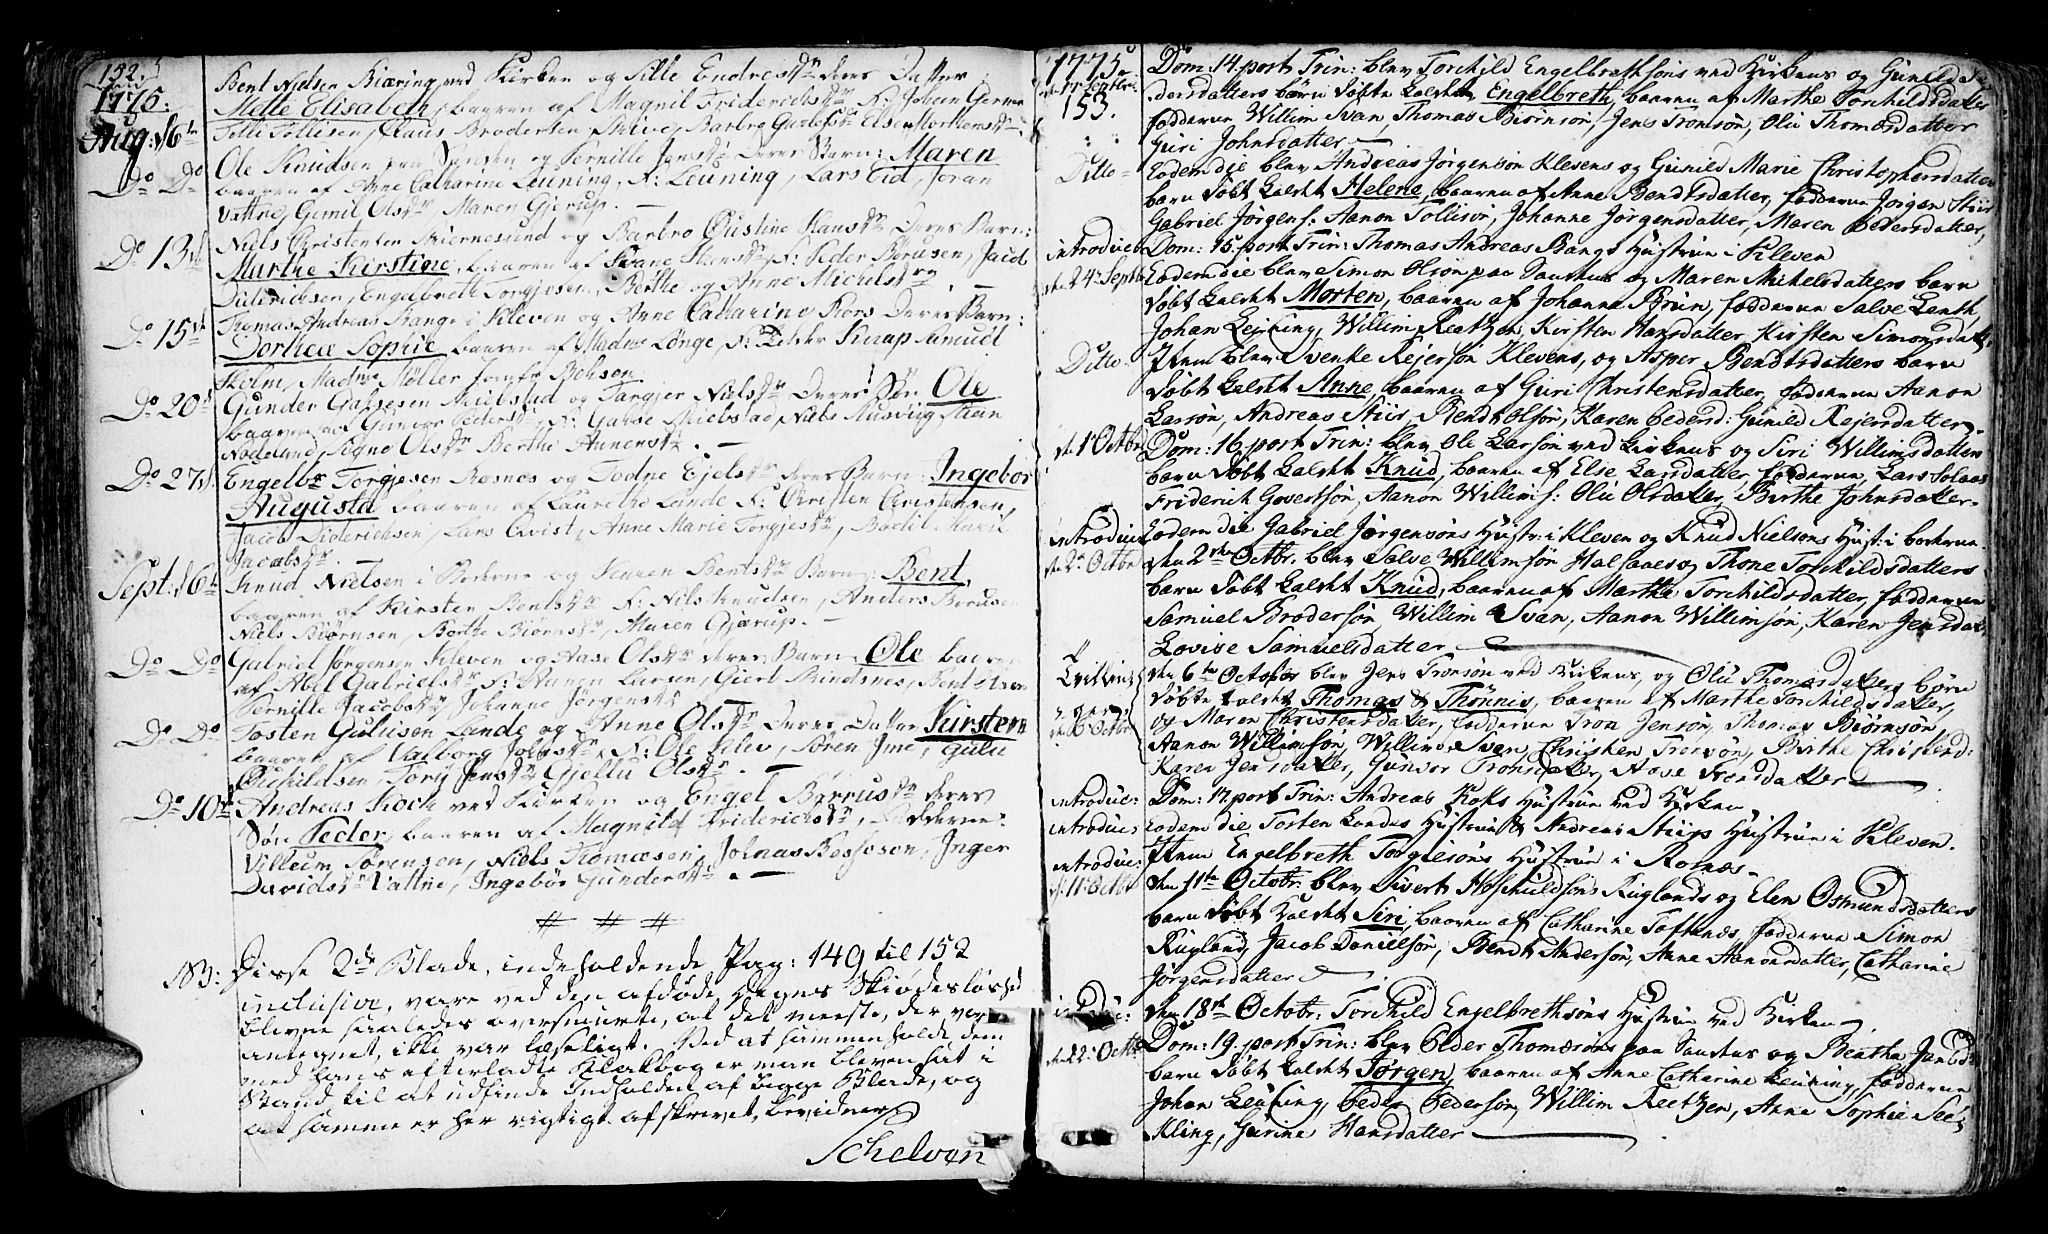 152.
1775.
Aug: 6te
Bent Nielsen Biæring ved Kirken og Sille Endresdr deres Datter
Mette Elisabeth, baaren af Magnil Friderichsdr F: Johan German
Tolli Tollisen, Claus Brodersen Skive, Barbro Gutlefsdr Else Mortensdr
Do Do
Ole Knudsen paa Sanden og Pernille Jensdr Deres Barn: Maren
baaren af Anne Catharine Leuning, F: Leuning, Lars Eid, Joran
Vattne, Gemil Olsdr Maren Gjerup. —
Do 13de
Niels Christensen Skiernesund og Barbro Christine Hansdr Deres Barn:
Marthe Kirstine, baaren af Svane Hansdr F: Peder Berusen, Jacob
Diderichsen, Engelbreth Torgjesen, Berthe og Anne Michelsdr. —
Do 15de
Thomas Andreas Bange i Kleven og Anne Catharine Rors Deres Barn:
Dorthea Sophie baaren af Madme Lønge, F: Peder Knap Samuel
Holm, Madme Møller Jomfr Bohsen
Do 20de
Gunder Gabsesen Skiebstad og Torgjer Nielsdr Deres Søn Ole
baaren af Gunvor Pedersdr, F: Gabse Skiebstad, Niels Ausvig Stein
Nodeland, Signe Olsdr Berthe Aanensdr. —
Do 27de
Engelbr Torgjesen Rosnes og Todne Ejelsdr deres Barn: Ingebor
Augusta baaren af Lauretha Lande F: Christen Christensen,
Jacob Diderichsen, Lars Qvist, Anne Marie Torgjesdr, Bodil Marie
Jacobsdr. —
Sept. 6te
Knud Nielsen i Boderne og Karen Bentsdr Barn: Bent,
baaren af Kirsten Bentsdr F: Nils Knudsen, Anders Berusen
Niels Biørnsen, Berthe Biørnsdr, Maren Gjærup. —
Do Do
Gabriel Jørgensen Kleven og Aase Olsdr deres Barn: Ole baaren
af Abel Gabrielsdr F: Aanen Larsen, Giert Rindsnes, Bent Olsen
Pernille Jacobsdr Johanne Jørgensdr
Do Do
Tosten Gulusen Lande og Anne Olsdr Deres Datter Kirsten
baaren af Valborg Johsdr F: Ole Klev, Søren Ime, Gulu
Ouhildsen Torij Jensdr Gjellu Olsdr. —
Do 10de
Andreas Koch ved Kirken og Engel Berrusdr deres
Søn Peder, baaren af Magnild Friderichsdr, Fadderne:
Villum Sørensen, Niels Thomesen, Johnas Bessesen, Inger
Davidsdr Vattne, Ingebor Gundersdr. —
# # #
NB: Disse 2de Blade, indeholdende Pag: 149 til 152
inclusive, vare ved den afdøde Degnes Skiødesløshed
blevne saaledes oversmurte, at det meeste, der var
antegnet, ikke var læseligt. Ved at sammenholde dem
med hans efterladte Kladbog er man bleven sat i
Stand til at udfinde Indholdet af begge Blade, og
at samme er her rigtigt afskrevet, bevidner
Schelven
1775.
den 17 Septbr.
153.
Dom: 14 post Trin: blev Torchild Engelbrethsøns ved Kirkens og Gunild Pe-
dersdatters barn døbt kaldt Engelbreth, baaren af Marthe Torchildsdatter
fadderne Willim Svan, Thomas Biørnsøn, Jens Tronsøn, Olu Thomæsdatter
Guri Johnsdatter —
Ditto —
Eodem die blev Andreas Jørgensøn Klevens og Gunild Marie Christophersdatters
barn døbt kaldt Helene, baaren af Anne Bendtsdatter, fadderne Jørgen Stiir
Gabriel Jørgens: Aanon Tollisøn, Johanne Jørgensdatter, Maren Pedersdatter,
introduc:
Dom: 15 post Trin: Thomas Andreas Bangs Hustrue i Kleven
den 24 Septbr
Eodem die blev Simon Olsøn paa Sandens og Maren Michelsdatters barn
døbt kaldt Morten, baaren af Johanne Brun, fadderne Salve Lenth,
Johan Leuning, Willim Reetzen, Kirsten Hansdatter, Kirsten Simonsdatt:
Ditto
Item blev Svenke Rejersøn Klevens, og Asper Bendtsdatters barn
døbt kaldt Anne, baaren af Guri Christensdatter, fadderne Aanon
Larsøn, Andreas Stiir, Bendt Olsøn, Karen Pedersd: Gunild Rejersdatter.
den 1 Octbr
Dom: 16 post Trin: blev Ole Larsøn ved Kirkens og Siri Willimsdatters
barn døbt kaldt Knud, baaren af Else Larsdatter, fadderne, Lars Solaas
Friderik Govertsøn, Aanon Willims: Olu Olsdatter, Birthe Johnsdatter.
introduc
Eodem die Gabriel Jørgensøns Hustr: i Kleven og Knud Nielsøns Hust: i boderne.
d: 2 Octbr
den 2den Octbr. blev Salve Willimsøn Halsaaes og Thone Torchildsdatters
barn døbt kaldt Knud, baaren af Marthe Torchildsdatter, fadderne
Samuel Brodersøn, Willim Svan, Aanon Willimsøn, Karen Jensdat:
Lovise Samuelsdatter —
Tvillinger
d: 6 Octbr
den 6te October blev Jens Tronsøn ved Kirkens, og Olu Thomæsdatters børn
døbte kaldt Thomas & Thønnis, baaren af Marthe Torchildsdatter,
og Maren Christensdatter, fadderne Tron Jensøn, Thomas Biørnsøn,
Aanon Willimsøn, Willim Svan, Christen Tronsøn, Birthe Christend:
Karen Jensdatter, Gunvor Tronsdatter, Aase Tronsdatter —
introduc:
Dom: 17 post Trin: Andreas Koks Hustrue ved Kirken
introduc:
Eodem die Tosten Landes Hustrue & Andreas Stiirs Hustrue i Kleven.
introduc:
Item Engelbreth Torgiesøns Hustrue i Rosnæs.
d: 11 Octbr
den 11te Octobr. blev Sivert Hofshuldsøns Ruglands og Elen Osmundsdatters
barn døbt kaldt Siri, baaren af Catharine Toftenæs, fadderne Simon
Rugland, Jacob Danielsøn, Bendt Andersøn, Anne Aanonsdatter, Catharine
Jørgensdatter —
introduc:
den 18de Octobr. Torchild Engelbrethsøns Hustrue ved Kirken
den 22 Octbr
Dom: 19 post Trin: blev Peder Thomæsøns paa Sandens og Beatha Jansd:
barn døbt kaldt Jørgen, baaren af Anne Catharine Leuning, fadderne
Johan Leuning, Peder Pedersøn, Willim Reetzen, Anne Sophie See-
kling, Gurine Hansdatter —